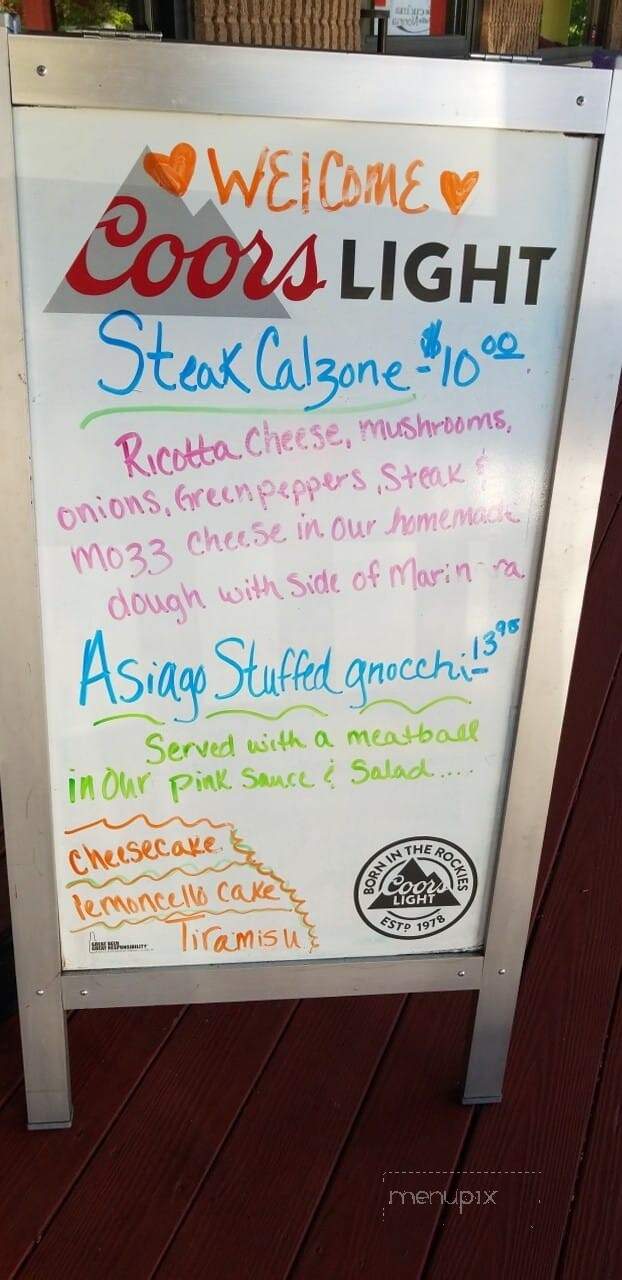 WElCOME
Coors LIGHT
Steak Calzone - $10 00
Ricotta Cheese, mushrooms,
onions, Green peppers, Steak &
Mozz cheese in our homemade
dough with side of Marin ra
Asiago Stuffed gnocchi - 13 98
Served with a meatball
in our pink sauce & Salad....
Cheesecake
lemoncello cake
Tiramisu
BORN IN THE ROCKIES
Coors
LIGHT
ESTD 1978
GREAT BEER
GREAT RESPONSIBILITY
menupix